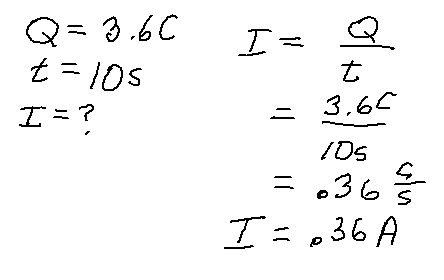 Q = 3.6C
t = 10s
I = ?
I = Q/t
= 3.6C/10s
= .36 C/s
I = .36A